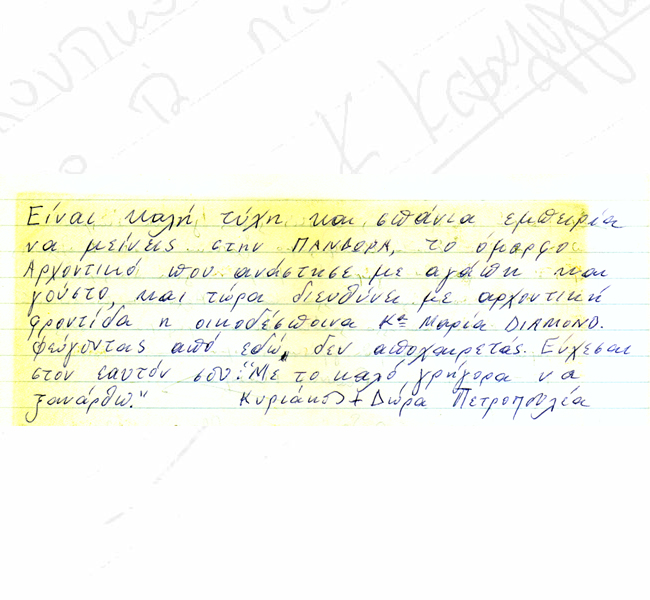 Κ Καραμ
Είναι καλή τύχη και σπάνια εμπειρία
να μείνεις στην ΠΑΝΔΟΡΑ, το όμορφο
Αρχοντικό που ανάστησε με αγάπη και
γούστο, και τώρα διευθύνει με αρχοντική
φροντίδα η οικοδέσποινα Κα Μαρία DIAMOND.
Φεύγοντας από εδώ, δεν αποχαιρετάς. Εύχεσαι
στον εαυτόν σου: "Με το καλό γρήγορα να
ξανάρθω." Κυριάκος + Δώρα Πετροπουλέα